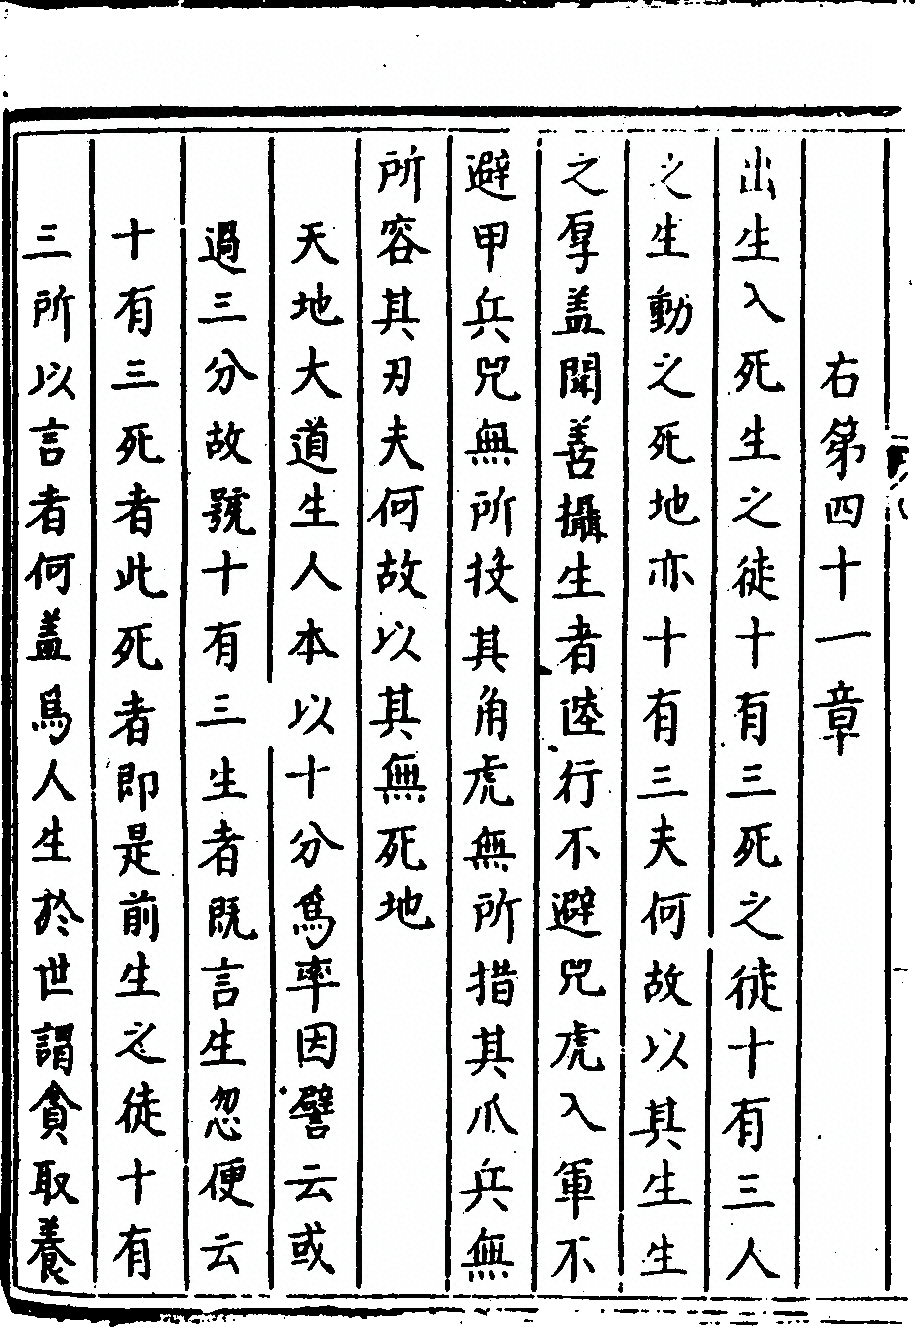 右第四十一章
出生入死生之徒十有三死之徒十有三人
之生動之死地亦十有三夫何故以其生生
之厚盖聞善攝生者陸行不避兕虎入軍不
避甲兵兕無所投其角虎無所措其爪兵無
所容其刃夫何故以其無死地
天地大道生人本以十分爲率因譬云或
過三分故號十有三生者既言生忽便云
十有三死者此死者即是前生之徒十有
三所以言者何盖爲人生於世謂貪取養